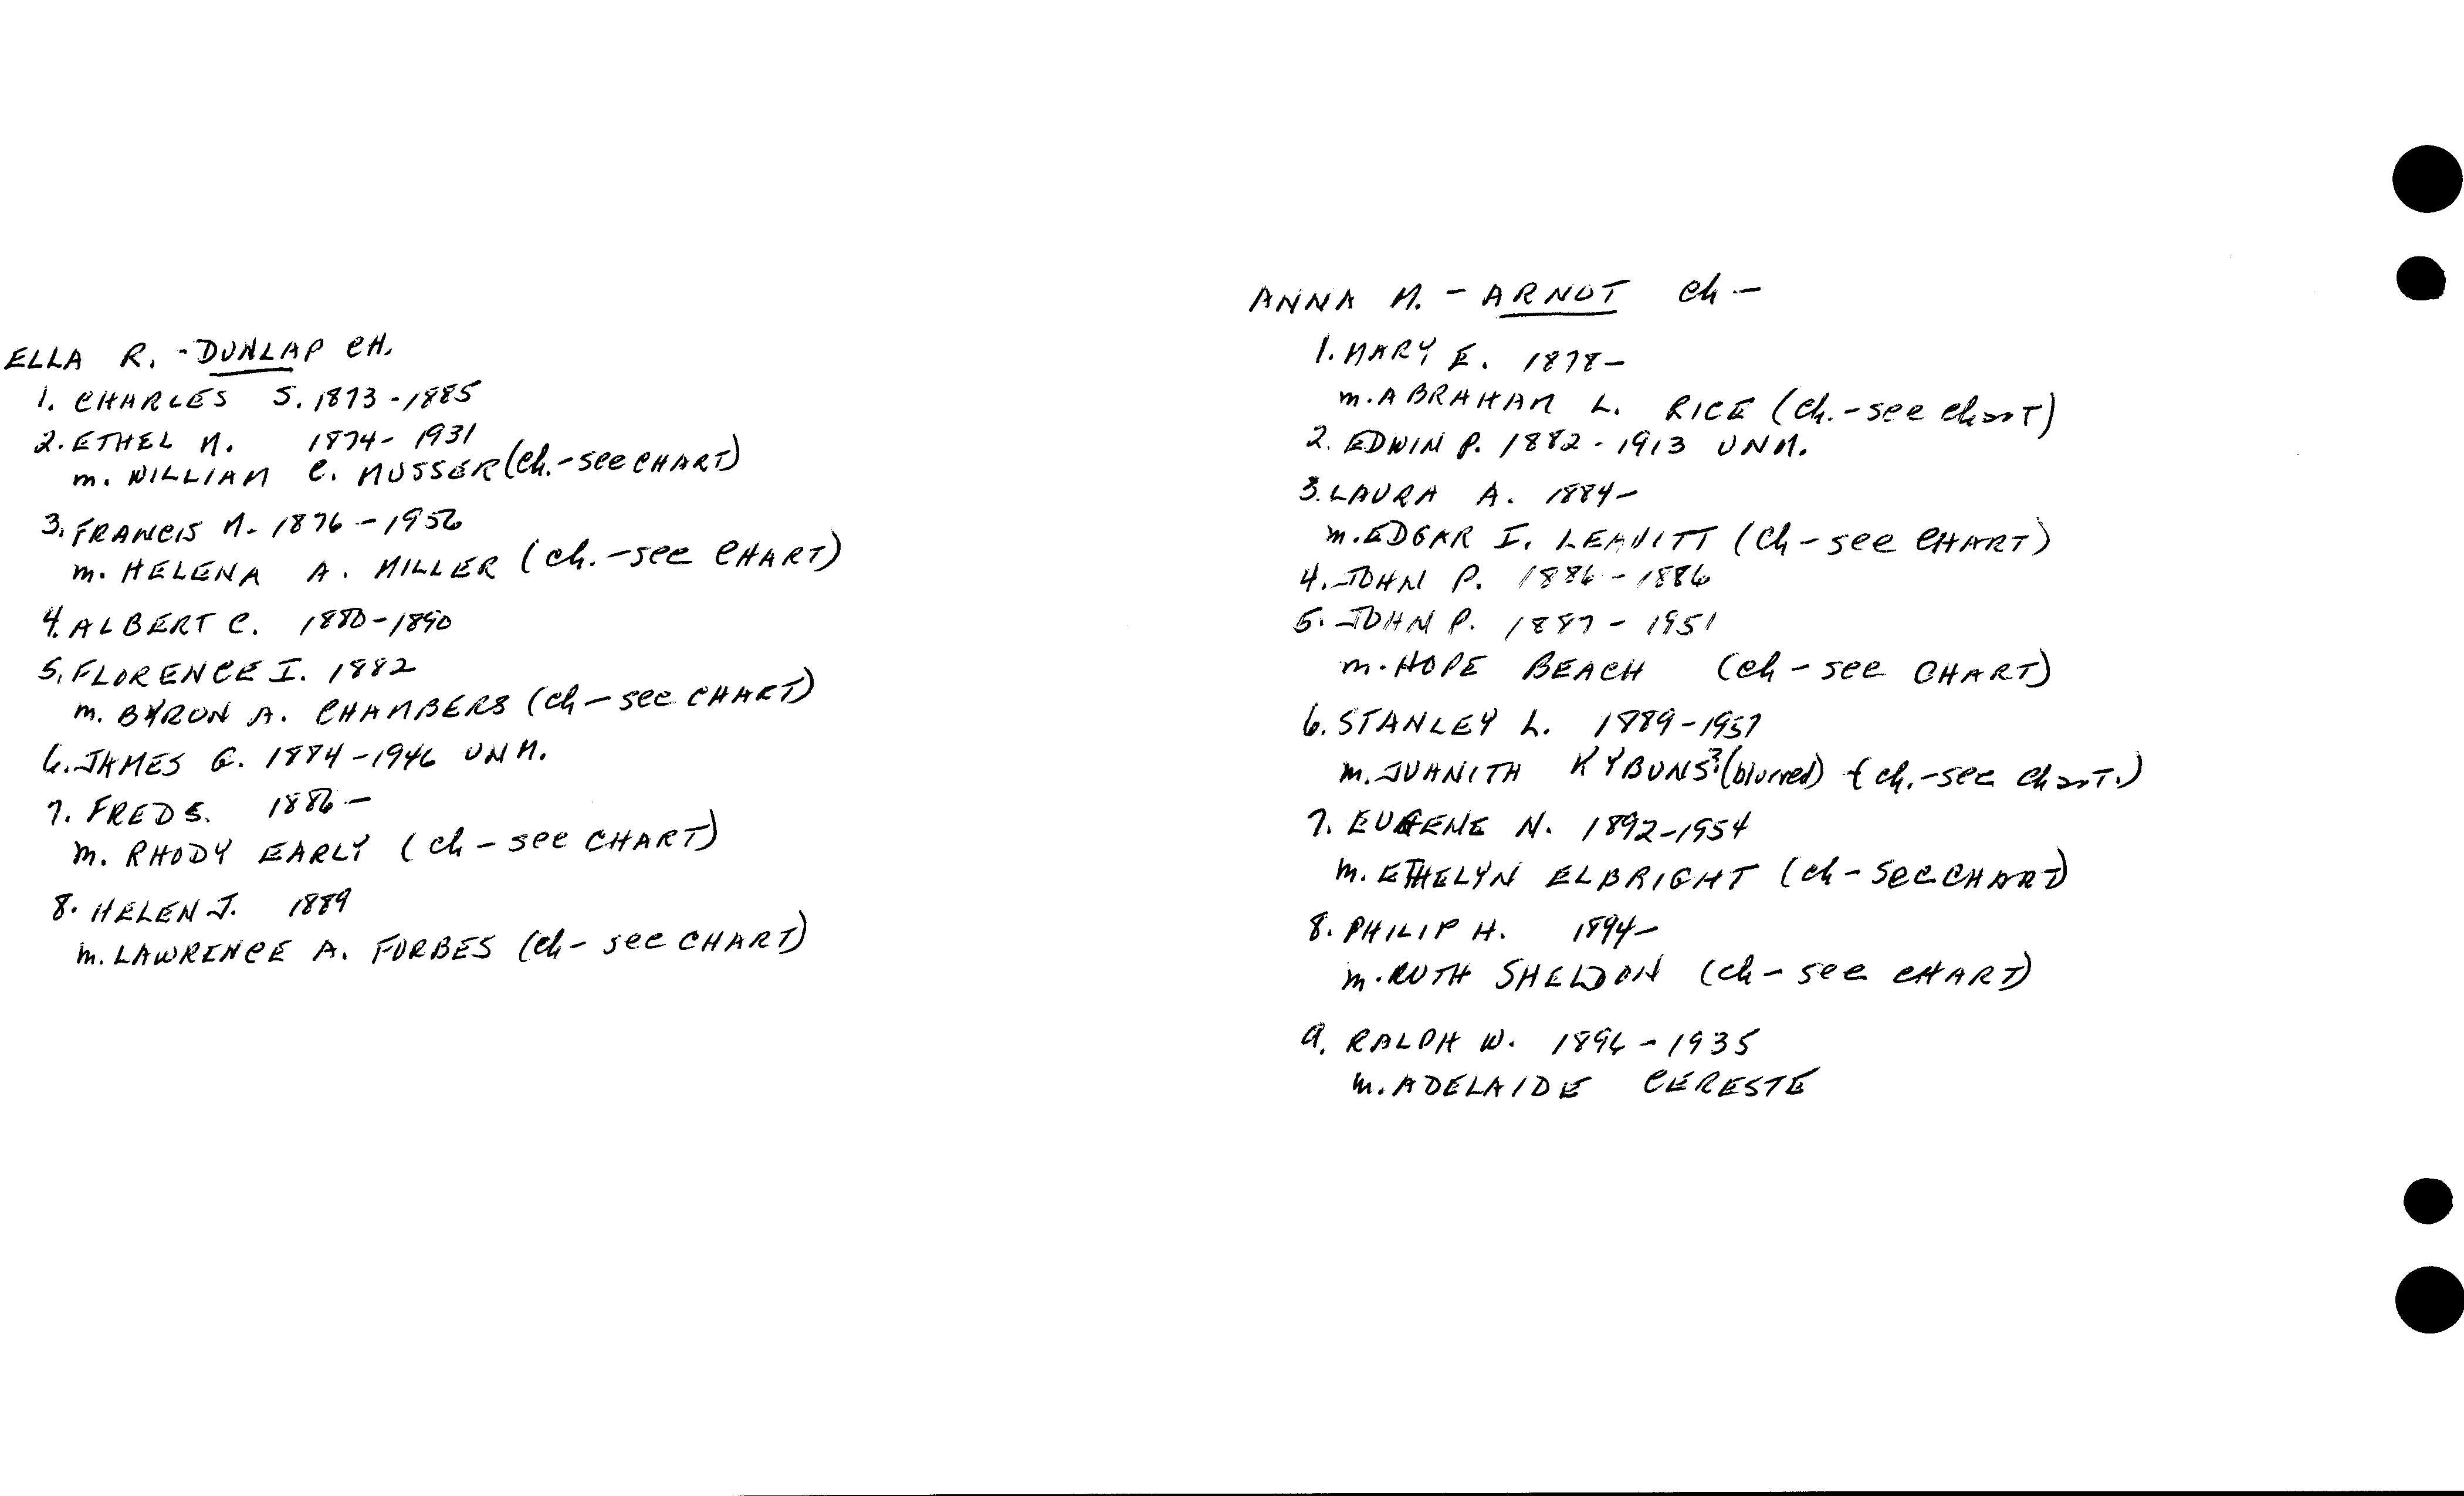 ELLA R. - DUNLAP CH.
1. CHARLES S. 1873-1885
2. ETHEL M. 1874-1931
m. WILLIAM C. MUSSER (Ch.-see CHART)
3. FRANCIS M. 1876-1956
m. HELENA A. MILLER (ch.-see CHART)
4. ALBERT C. 1880-1890
5. FLORENCE I. 1882
m. BYRON A. CHAMBERS (ch-see CHART)
6. JAMES G. 1884-1946 UNM.
7. FRED S. 1886-
m. RHODY EARLY (ch-see CHART)
8. HELEN J. 1889
m. LAWRENCE A. FORBES (ch-see CHART)
ANNA M. - ARNDT ch-
1. MARY E. 1878-
m. ABRAHAM L. RICE (ch.-see charT)
2. EDWIN P. 1882-1913 UNM.
3. LAURA A. 1884-
m. EDGAR I. LEAVITT (ch-see CHART)
4. JOHN P. 1886-1886
5. JOHN P. 1887-1951
m. HOPE BEACH (ch-see CHART)
6. STANLEY L. 1889-1957
m. JUANITA KYBUNS? (blurred) (ch.-see charT.)
7. EUGENE N. 1892-1954
m. ETHELYN ELBRIGHT (ch-see CHART)
8. PHILIP H. 1894-
m. RUTH SHELDON (ch-see CHART)
9. RALPH W. 1896-1935
m. ADELAIDE CERESTE